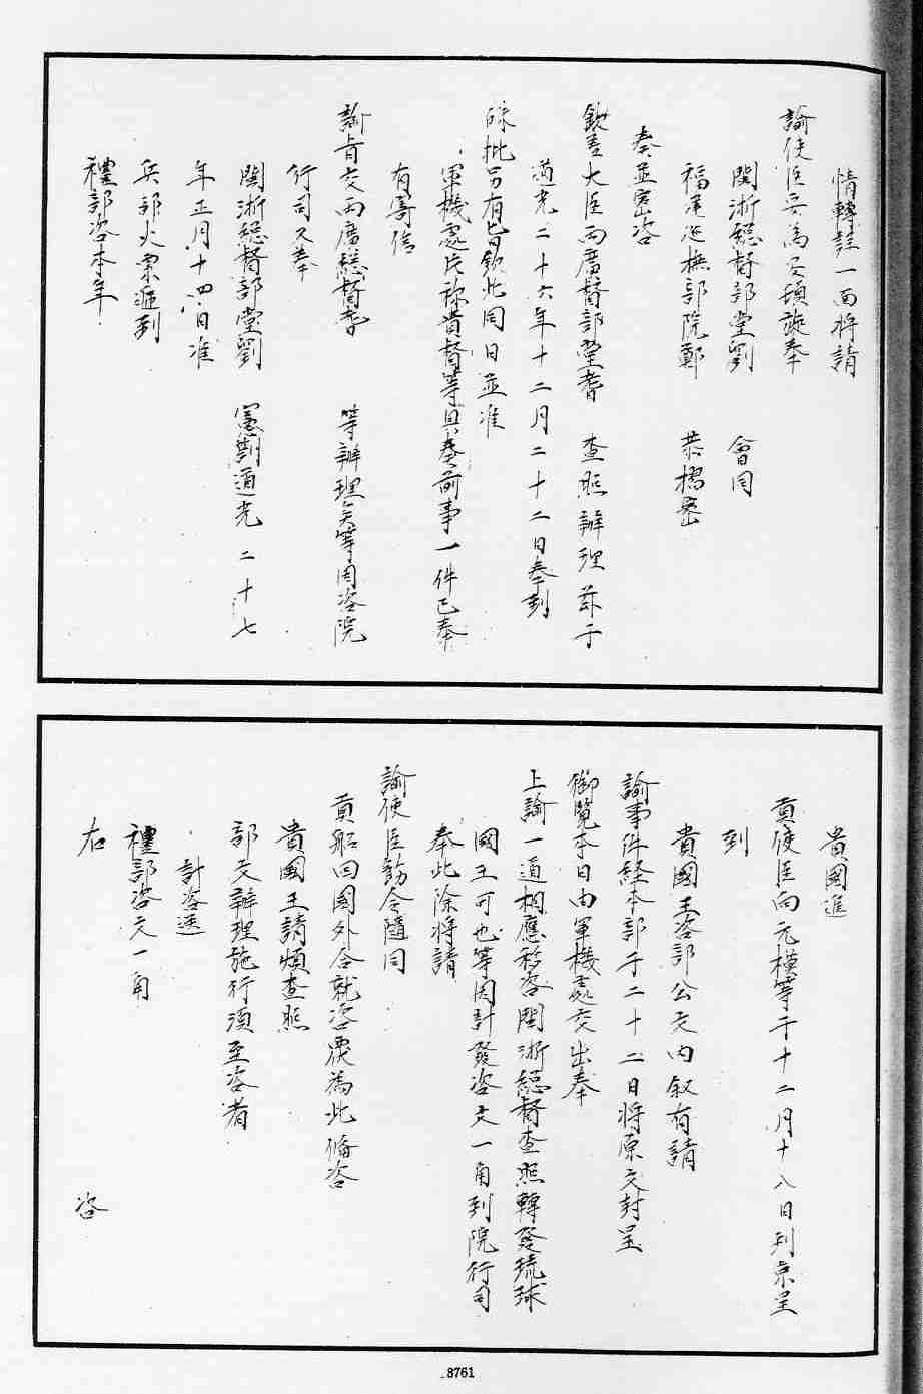 情轉詳一面將請
諭使臣吳為及頃旋奉
閩浙總督部堂劉　會同
福建巡撫部院鄭　恭摺密
奏並密咨
欽差大臣兩廣督部堂耆　查照辦理茲于
道光二十六年十二月二十二日奉到
硃批另有旨欽此同日並准
軍機處片稱貴督等具奏前事一件已奉
有寄信
諭旨交兩廣總督耆　等辦理矣等因咨院
行司又奉
閩浙總督部堂劉　憲劄道光二十七
年正月十四日准
兵部火票遞到
禮部咨本年
貴國進
貢使臣向元模等于十二月十八日到京呈
到
貴國王咨部公文內叙有請
諭事件経本部于二十二日將原文封呈
御覽本日由軍機處交出奉
上諭一道相應移咨閩浙總督查照轉發琉球
國王可也等因計發咨文一角到院行司
奉此除將請
諭使臣飭令隨同
貢船回國外合就咨覆為此備咨
貴國王請煩查照
部文辦理施行須至咨者
計咨送
禮部咨文一角
右　咨
8761